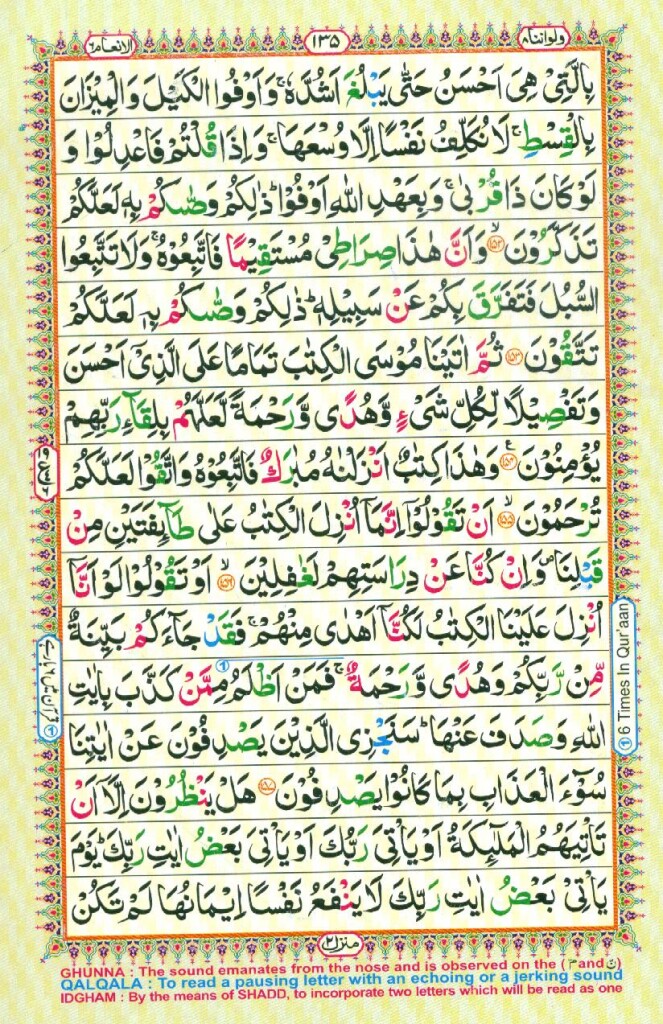 ولواننا ٨ ١٣٥ الانعام ٦
بِالَّتِیْ هِیَ اَحْسَنُ حَتّٰی یَبْلُغَ اَشُدَّهٗ ۚ وَاَوْفُوا الْكَیْلَ وَالْمِیْزَانَ
بِالْقِسْطِ ۚ لَا نُكَلِّفُ نَفْسًا اِلَّا وُسْعَهَا ۚ وَاِذَا قُلْتُمْ فَاعْدِلُوْا وَ
لَوْ كَانَ ذَا قُرْبٰی ۚ وَبِعَهْدِ اللّٰهِ اَوْفُوْا ؕ ذٰلِكُمْ وَصّٰىكُمْ بِهٖ لَعَلَّكُمْ
تَذَكَّرُوْنَ ۙ﴿۱۵۲﴾ وَاَنَّ هٰذَا صِرَاطِیْ مُسْتَقِیْمًا فَاتَّبِعُوْهُ ۚ وَلَا تَتَّبِعُوا
السُّبُلَ فَتَفَرَّقَ بِكُمْ عَنْ سَبِیْلِهٖ ؕ ذٰلِكُمْ وَصّٰىكُمْ بِهٖ لَعَلَّكُمْ
تَتَّقُوْنَ ﴿۱۵۳﴾ ثُمَّ اٰتَیْنَا مُوْسَی الْكِتٰبَ تَمَامًا عَلَی الَّذِیْۤ اَحْسَنَ
وَتَفْصِیْلًا لِّكُلِّ شَیْءٍ وَّهُدًی وَّرَحْمَةً لَّعَلَّهُمْ بِلِقَآءِ رَبِّهِمْ
یُؤْمِنُوْنَ ﴿۱۵۴﴾ ع وَهٰذَا كِتٰبٌ اَنْزَلْنٰهُ مُبٰرَكٌ فَاتَّبِعُوْهُ وَاتَّقُوْا لَعَلَّكُمْ
تُرْحَمُوْنَ ۙ﴿۱۵۵﴾ اَنْ تَقُوْلُوْۤا اِنَّمَاۤ اُنْزِلَ الْكِتٰبُ عَلٰی طَآىِٕفَتَیْنِ مِنْ
قَبْلِنَا ۪ وَاِنْ كُنَّا عَنْ دِرَاسَتِهِمْ لَغٰفِلِیْنَ ۙ﴿۱۵۶﴾ اَوْ تَقُوْلُوْا لَوْ اَنَّاۤ
اُنْزِلَ عَلَیْنَا الْكِتٰبُ لَكُنَّاۤ اَهْدٰی مِنْهُمْ ۚ فَقَدْ جَآءَكُمْ بَیِّنَةٌ
مِّنْ رَّبِّكُمْ وَهُدًی وَّرَحْمَةٌ ۚ فَمَنْ اَظْلَمُ مِمَّنْ كَذَّبَ بِاٰیٰتِ
اللّٰهِ وَصَدَفَ عَنْهَا ؕ سَنَجْزِی الَّذِیْنَ یَصْدِفُوْنَ عَنْ اٰیٰتِنَا
سُوْٓءَ الْعَذَابِ بِمَا كَانُوْا یَصْدِفُوْنَ ﴿۱۵۷﴾ هَلْ یَنْظُرُوْنَ اِلَّاۤ اَنْ
تَاْتِیَهُمُ الْمَلٰٓىِٕكَةُ اَوْ یَاْتِیَ رَبُّكَ اَوْ یَاْتِیَ بَعْضُ اٰیٰتِ رَبِّكَ ؕ یَوْمَ
یَاْتِیْ بَعْضُ اٰیٰتِ رَبِّكَ لَا یَنْفَعُ نَفْسًا اِیْمَانُهَا لَمْ تَكُنْ
① 6 Times In Qur'aan
منزل ٢
GHUNNA : The sound emanates from the nose and is observed on the ( مّ and نّ )
QALQALA : To read a pausing letter with an echoing or a jerking sound
IDGHAM : By the means of SHADD, to incorporate two letters which will be read as one